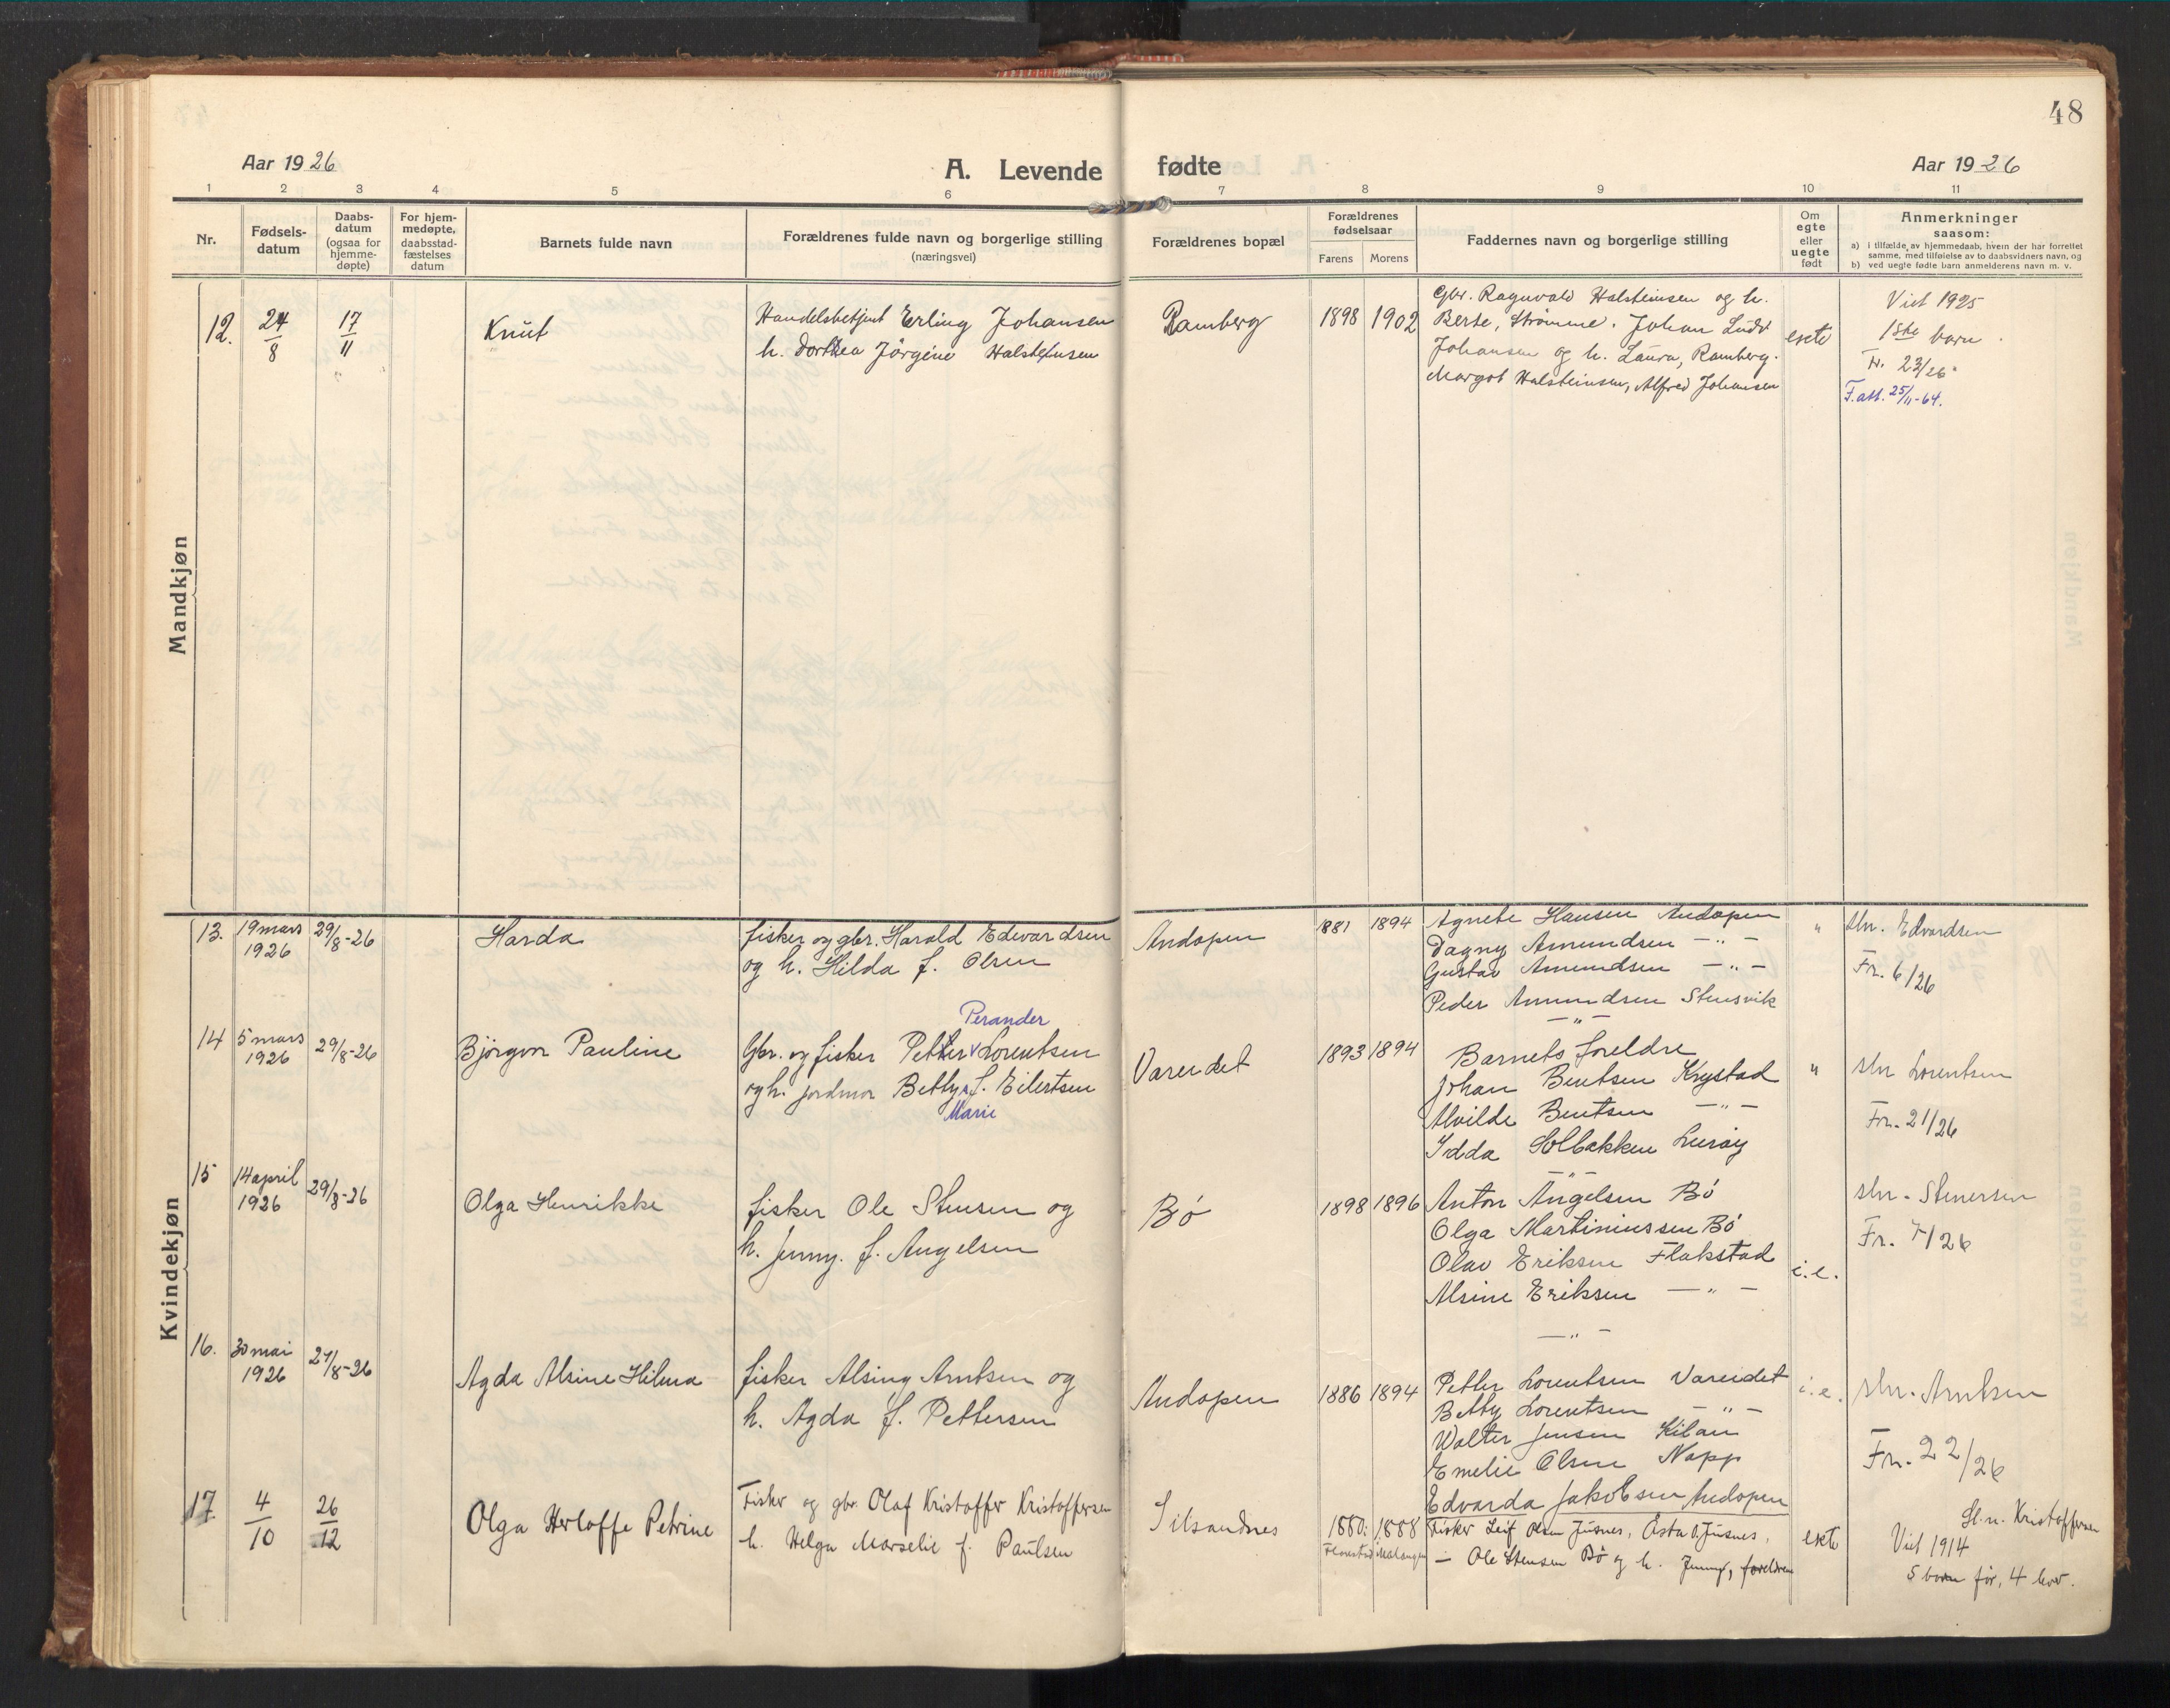 48
Aar 1926
A. Levende fødte
Aar 1926
1 2 3 4 5 6 7 8 9 10 11
Nr.
Fødsels-
datum
Daabs-
datum
(ogsaa for
hjemme-
døpte)
For hjem-
medøpte,
daabsstad-
fæstelses
datum
Barnets fulde navn
Forældrenes fulde navn og borgerlige stilling
(næringsvei)
Forældrenes bopæl
Forældrenes
fødselsaar
Farens
Morens
Faddernes navn og borgerlige stilling
Om
egte
eller
uegte
født
Anmerkninger
saasom:
a) i tilfælde av hjemmedaab, hvem der har forrettet
samme, med tilføielse av to daabsvidners navn, og
b) ved uegte fødte barn anmelderens navn m. v.
Mandkjøn
12.
24/8
17/11
Knut
Handelsbetjent Erling Johansen
h. Dorthea Jörgine Halsteinsen
Ramberg
1898
1902
Gbr. Ragnvald Halsteinsen og h.
Berte, Strömme. Johan Ludv
Johansen og h. Laura, Ramberg.
Margot Halsteinsen, Alfred Johansen
ekte
Viet 1925
1ste barn.
Fr. 23/26
F.att. 25/11-64.
Kvindekjøn
13.
19 mars
1926
29/8-26
Harda
fisker og gbr. Harald Edvardsen
og h. Hilda f. Olsen
Andopen
1881
1894
Agnete Hansen Andopen
Dagny Amundsen — " —
Gustav Amundsen — " —
Peder Amundsen Stensvik
— " —
"
sln. Edvardsen
Fr. 6/26
14
5 mars
1926
29/8-26
Björgvor Pauline
Perander
Gbr. og fisker Petter v Lorentsen
og h. jordmor Betty f. Eilertsen
Marie
Vareidet
1893
1894
Barnets foreldre
Johan Bentsen Krystad
Alvilde Bentsen — " —
Idda Solbakken Luröy
— " —
"
sln Lorentsen
Fr. 21/26
15
14 april
1926
29/8-26
Olga Henrikke
fisker Ole Stensen og
h. Jenny. f. Angelsen
Bö
1898
1896
Anton Angelsen Bö
Olga Martiniussen Bö
Olav Eriksen Flakstad
Alsine Eriksen — " —
— " —
i.e.
sln. Stenersen
Fr. 7/26
16.
30 mai
1926
29/8-26
Agda Alsine Hilma
fisker Alsing Arntsen og
h. Agda f. Pettersen
Andopen
1886
1894
Petter Lorentsen Vareidet
Betty Lorentsen — " —
Walter Jensen Kilan
Emelie Olsen Napp
Edvarda Jakobsen Andopen
i.e.
sln. Arntsen
Fr. 22/26
17
4/10
26/12
Olga Herloffe Petrine
Fisker og gbr. Olaf Kristoffer Kristoffersen
h. Helga Marselie f. Paulsen
Silsandnes
1880.
1888
Malangen
Fisker Leif Olsen Jusnes, Asta O. Jusnes,
— Ole Stensen Bö og h. Jenny, foreldrene
ekte
Sl.n. Kristoffersen
Viet 1914
5 barn för, 4 lever.